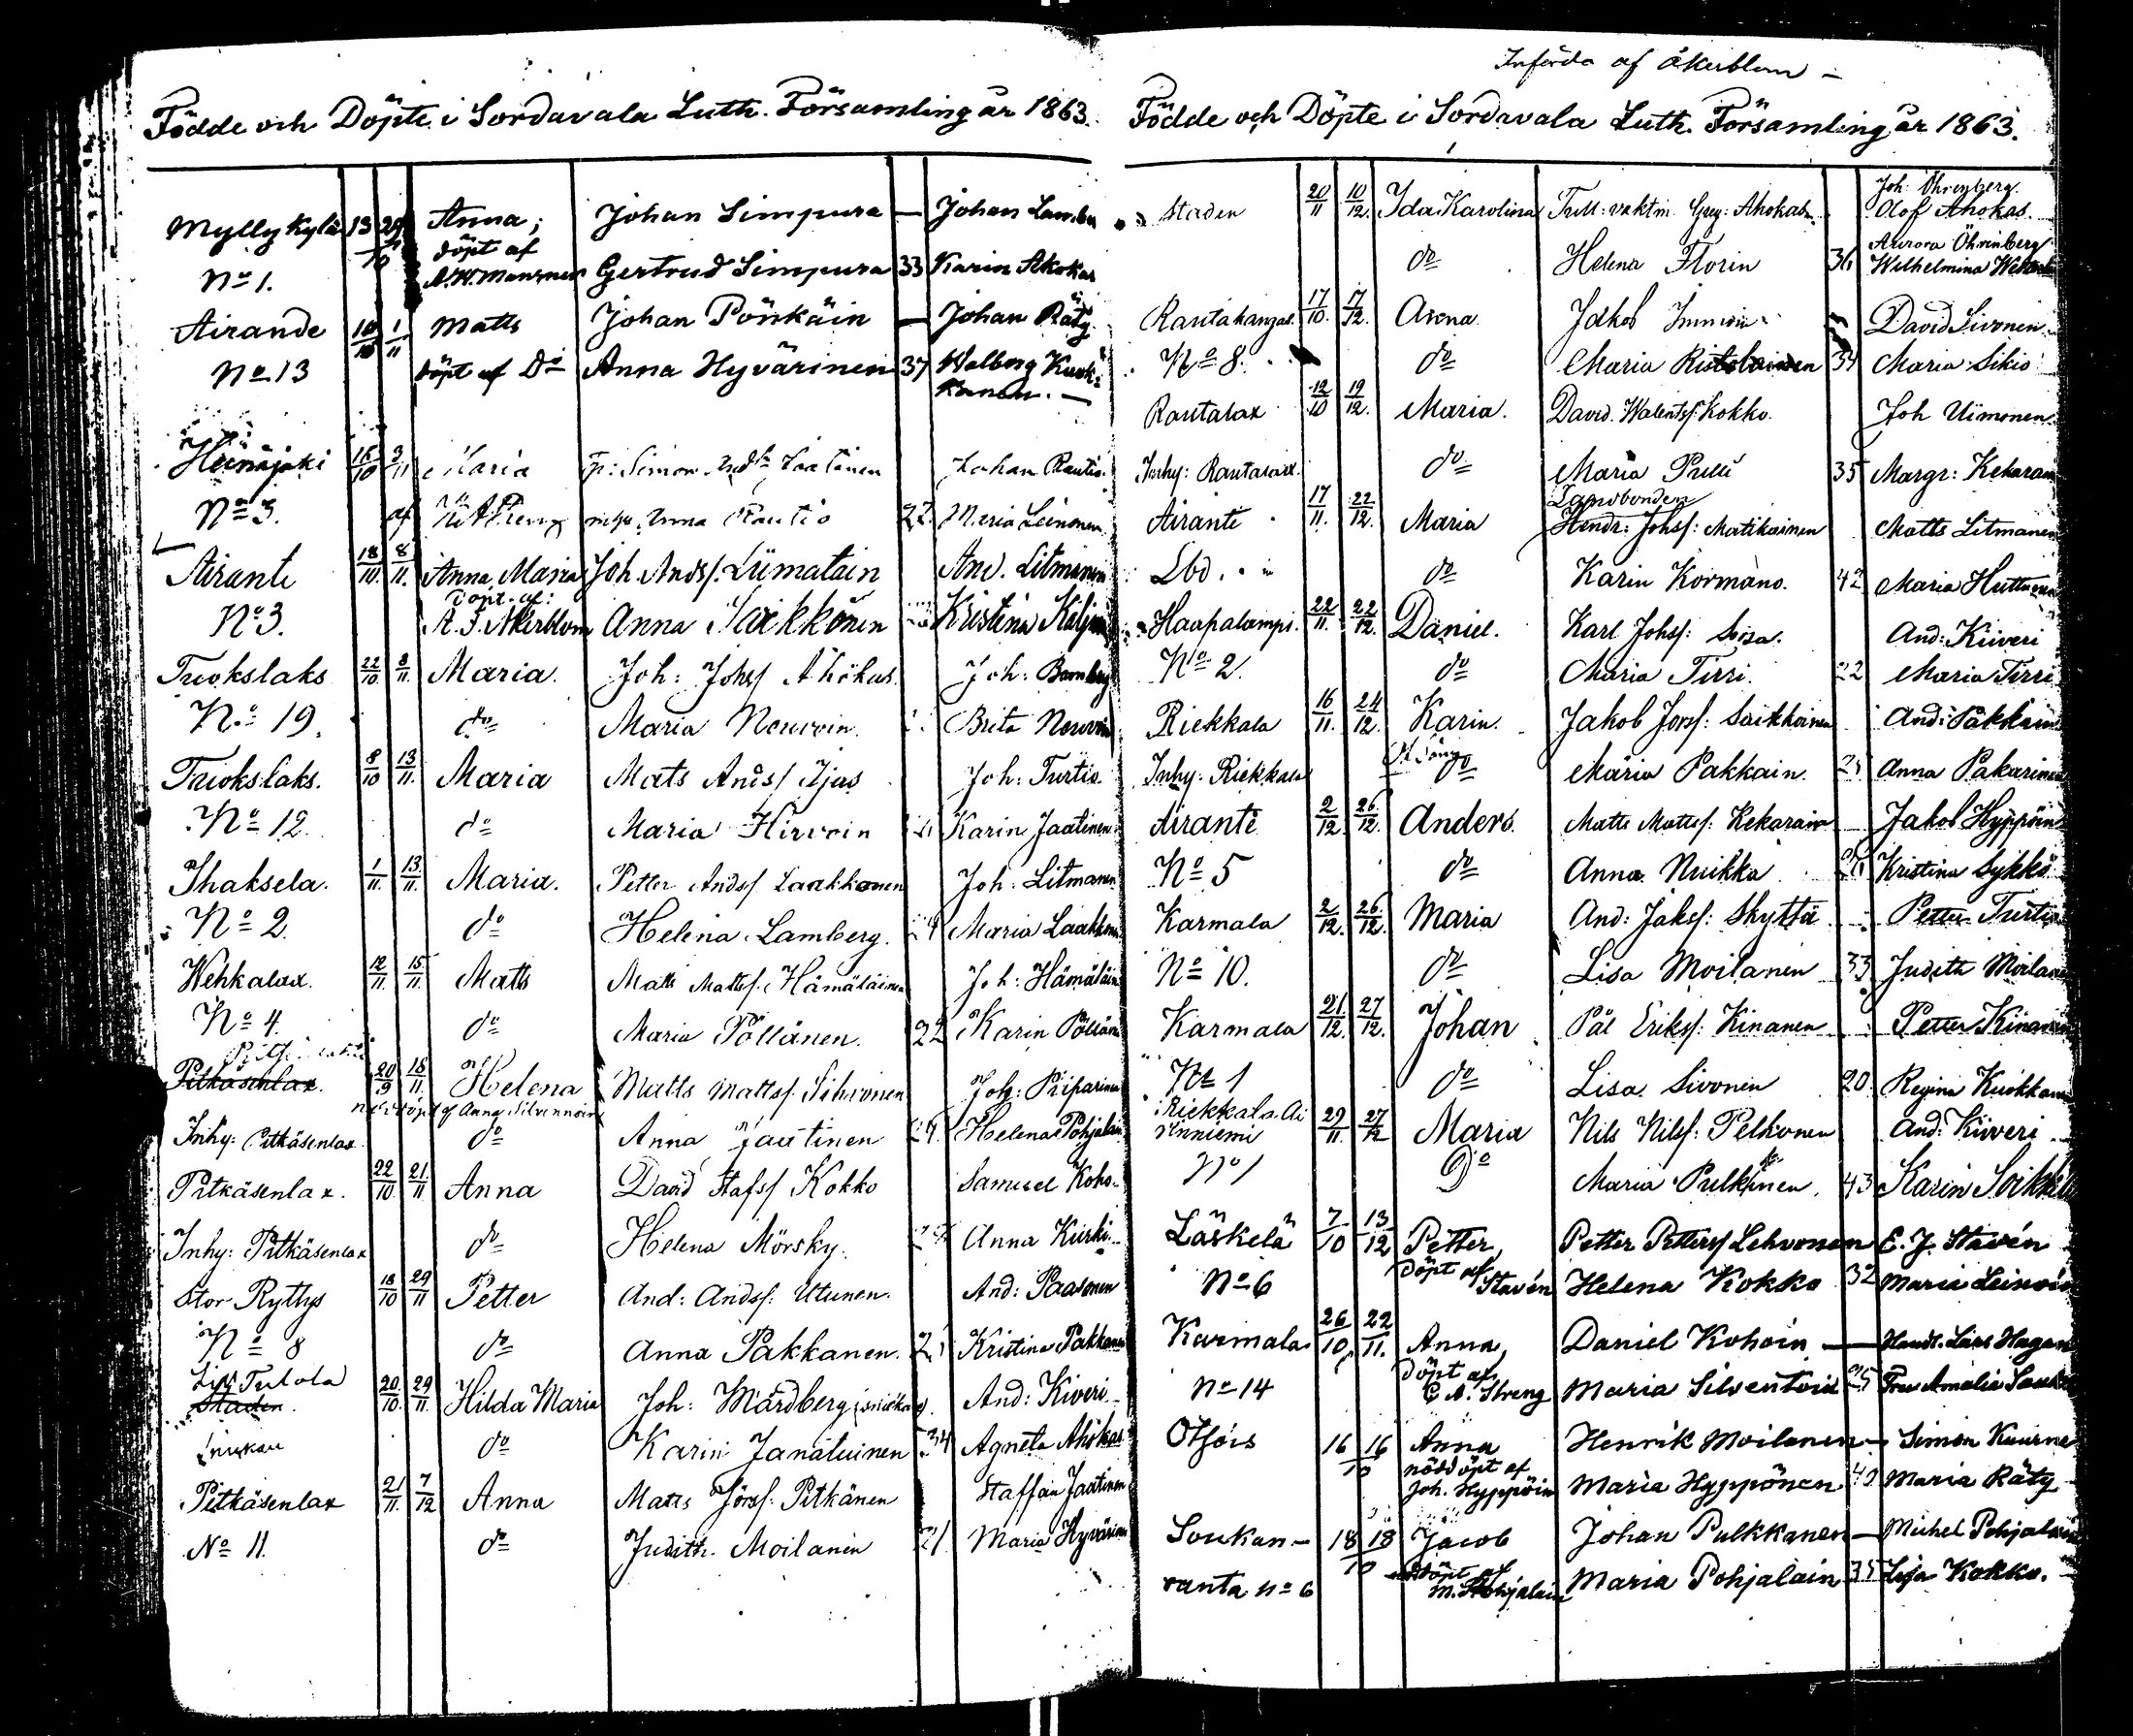 Införda af Åkerblom –
Födde och Döpte i Sordavala Luth. Församling år 1863.
Mylly kylä 13 29/10 Anna, Johan Simpura — Johan Lamber
döpt af
No 1. Gertrud Simpura 33 Karin Ahokas
Airande 10/10 1/11 Matts Johan Pönkäin — Johan Räty
No 13 döpt af Do Anna Hyvärinen 37 Walborg Kuok-
kanen. —
Heinäjoki 16/10 3/11 Maria Simon Jaatinen Johan Rautio.
No 3. af Anna Rautio 22 Maria Leinonen
Airanti 18/10. 8/11. Anna Maria Joh. Andsf. Liimatain And. Litmanen
döpt. af:
No 3. A. F. Åkerblom Anna Saikkönen Kristina
Tuokslaks 22/10 8/11. Maria. Joh: Johsf Ahokas Joh: Bamberg
No 19. do Maria Neuvoin. Brita Neuvoin
Tuokslaks. 8/10 13/11. Maria Mats Andsf Ijas Joh: Turtia
No 12. do Maria Hirvoin Karin Jaatinen
Ihaksela. 1/11. 13/11. Maria. Petter Andsf Laakkonen Joh: Litmanen
No 2. do Helena Lamberg. 24 Maria Laakkonen
Wehkalax. 12/11. 15/11. Matts Matts Mattsf. Hämäläinen Joh: Hämäläin
No 4. do Maria Pöllänen. 22 Karin Pöllänen
Pitkäsenlax. 20/9 18/11. Helena Matts Mattsf. Sihvonen Joh: Piiparinen
nöddöpt af Anna Silvennoin
Inhy: Pitkäsenlax do Anna Jaatinen 24 Helena Pohjalain
Pitkäsenlax. 22/10. 21/11 Anna David Stafsf Kokko Samuel Koho.
Inhy: Pitkäsenlax do Helena Mörsky. Anna Kurki.
Stor Ryttys 18/10 29/11 Petter And: Andsf: Utunen. And: Paasonen
No 8 do Anna Pakkanen. Kristina Pakkanen
Tulola
Staden. 20/10. 29/11. Hilda Maria Joh: Mårdberg And: Kiveri.
do Karin Janatuinen 34 Agneta Ahokas
Pitkäsenlax 21/11. 7/12 Anna Matts Jörsf. Pitkänen Staffan Jaatinen
No 11. do Judith. Moilanen 21 Maria Hyvärinen
Födde och Döpte i Sordavala Luth. Församling år 1863.
Joh. Öhrnberg.
Staden 20/11 10/12. Ida Karolina Tull: vaktm. Greg: Ahokas Olof Ahokas.
Aurora Öhrnberg
do Helena Florin 36 Wilhelmina
Rautakangas 17/10. 17/12. Anna Jakob Immoin David Sivonen
No 8. do Maria Ristolainen 34 Maria Sikiö
Rautalax 12/10 19/12. Maria. David. Walentsf. Kokko. Joh Uimonen.
Inhy: Rautalax do Maria Pulli 35 Margr: Kekarain
Landbonden
Airante 17/11. 22/12. Maria Hendr: Johsf: Matikainen Matts Litmanen
Lbd. do Karin Kormano. 42 Maria Huttunen
Haapalampi. 22/11. 22/12. Daniel. Karl Johsf: And: Kiiveri
No 2. do Maria Tirri. 22 Maria Tirri
Riekkala 16/11. 24/12. Karin. Jakob Jorsf: Saikkoinen And: Pakkain
Inhy: Riekkala do Maria Pakkain. Anna Pakarinen
Airante 2/12. 26/12. Anders. Matts Mattsf: Kekarain Jakob Hyppöin
No 5 do Anna Nuikka Kristina Sykkö
Karmala 2/12. 26/12. Maria And: Jaksf: Skyttä Petter Turtia
No 10. do Lisa Moilanen 33 Judith Moilanen
Karmala 21/12. 27/12. Johan Pål Eriksf: Kinanen Petter Kinanen
No 1 do Lisa Sivonen 20 Regina Kuokkanen
Riekkala
29/11. 27/12 Maria Nils Nilsf: Pelkonen And: Kiiveri
No 1 Do Maria Pulkkinen. 43 Karin Soikkeli
Läskelä 7/10 13/12 Petter, Petter Pettersf Lehvonen E. J. Stavén
No 6 döpt af Stavén Helena Kokko 32 Maria Leinoin
Karmala 26/10 22/11. Anna, Daniel Kohoin — Handl. Lars Hagan
döpt af
No 14 C. A. Streng Maria Silventoin 25 Fru Amalia
Otsois 16 16/10 Anna Henrik Moilanen — Simon Kuurne
nöddöpt af
Joh. Hyppöin Maria Hyppönen 40 Maria Räty
Soukan- 18 18/10 Jacob Johan Pulkkanen — Michel Pohjalain
nöddöpt af
ranta No 6 M. Pohjalain Maria Pohjalain 35 Lisa Kokko.